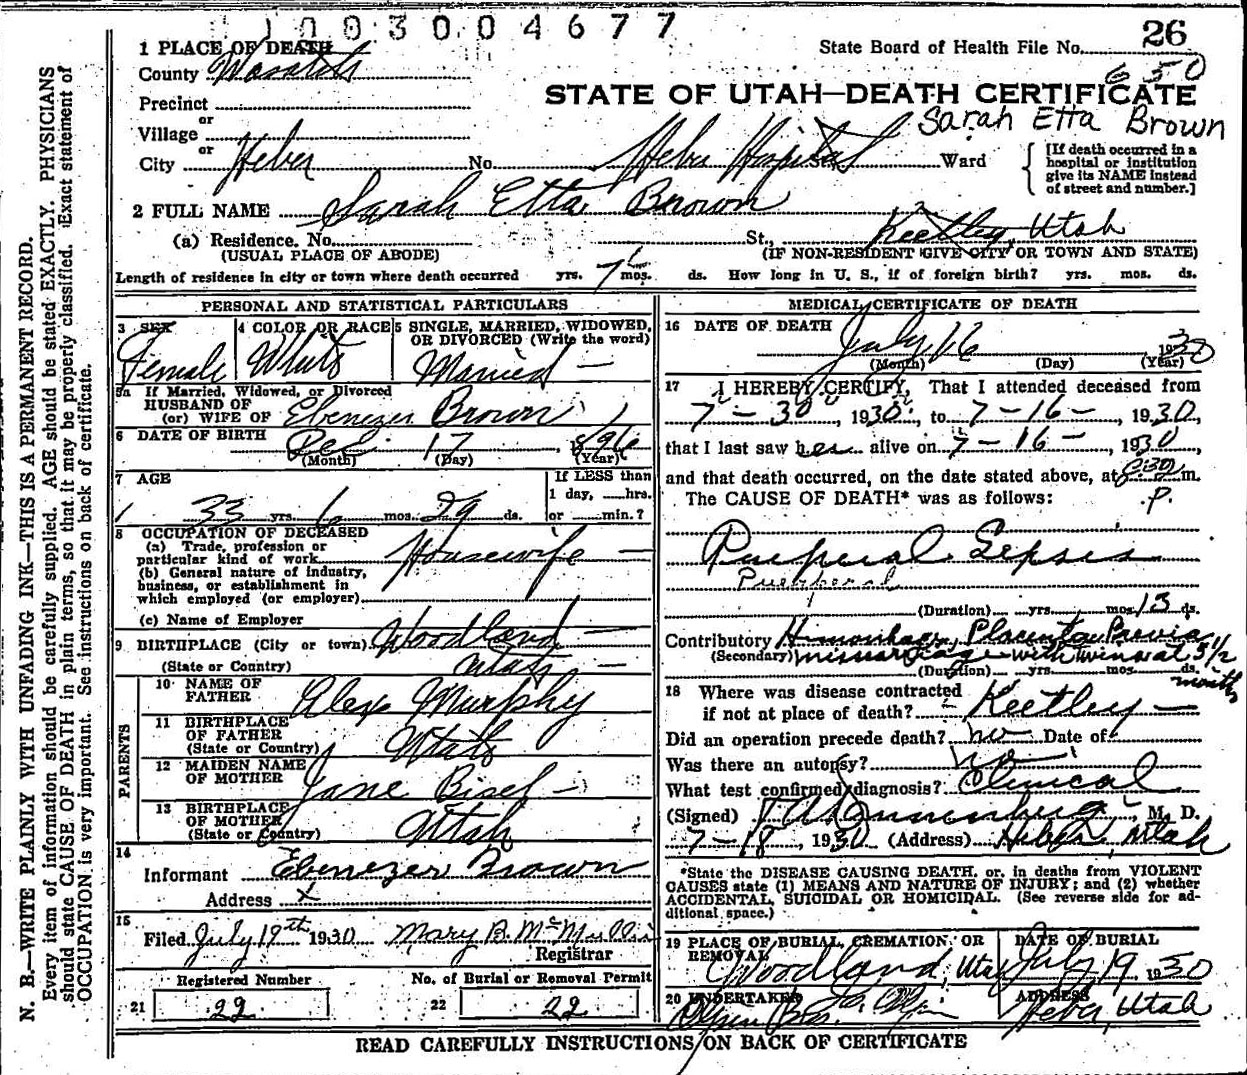 1003004677
26
1 PLACE OF DEATH
State Board of Health File No.
650
County Wasatch
STATE OF UTAH—DEATH CERTIFICATE
Precinct
or
Village
Sarah Etta Brown
or
City Heber No. Heber Hospital Ward
[If death occurred in a hospital or institution give its NAME instead of street and number.]
2 FULL NAME Sarah Etta Brown
(a) Residence. No. St., Keetley, Utah
(USUAL PLACE OF ABODE) (IF NON-RESIDENT GIVE CITY OR TOWN AND STATE)
Length of residence in city or town where death occurred yrs. mos. ds. How long in U. S., if of foreign birth? yrs. mos. ds.
PERSONAL AND STATISTICAL PARTICULARS
3 SEX
Female
4 COLOR OR RACE
White
5 SINGLE, MARRIED, WIDOWED, OR DIVORCED (Write the word)
Married
5a If Married, Widowed, or Divorced
HUSBAND OF
(or) WIFE OF Ebenezer Brown
6 DATE OF BIRTH
Dec 17 1896
(Month) (Day) (Year)
7 AGE
33 yrs. 6 mos. 29 ds.
If LESS than
1 day, hrs.
or min.?
8 OCCUPATION OF DECEASED
(a) Trade, profession or
particular kind of work Housewife
(b) General nature of industry,
business, or establishment in
which employed (or employer)
(c) Name of Employer
9 BIRTHPLACE (City or town) Woodland
(State or Country) Utah
PARENTS
10 NAME OF
FATHER Alex Murphy
11 BIRTHPLACE
OF FATHER
(State or Country) Utah
12 MAIDEN NAME
OF MOTHER Jane Bisel
13 BIRTHPLACE
OF MOTHER
(State or Country) Utah
14
Informant Ebenezer Brown
Address X
15
Filed July 19th 1930 Mary B. McMullin
Registrar
Registered Number
21 22
No. of Burial or Removal Permit
22 22
MEDICAL CERTIFICATE OF DEATH
16 DATE OF DEATH
July 16 1930
(Month) (Day) (Year)
17 I HEREBY CERTIFY, That I attended deceased from
7-30 1930 to 7-16- 1930,
that I last saw her alive on 7-16- 1930,
and that death occurred, on the date stated above, at 830 m.
The CAUSE OF DEATH* was as follows: P.
Puerperal Sepsis
Puerperal
(Duration) yrs. mos. 13 ds.
Contributory Hemorrhage, Placenta Previa
(Secondary) miscarriage with twins at 5 1/2
months
(Duration) yrs. mos. ds.
18 Where was disease contracted
if not at place of death? Keetley
Did an operation precede death? no Date of
Was there an autopsy? no
What test confirmed diagnosis? Clinical
(Signed) M. D.
7-18, 1930 (Address) Heber, Utah
*State the DISEASE CAUSING DEATH, or, in deaths from VIOLENT
CAUSES state (1) MEANS AND NATURE OF INJURY; and (2) whether
ACCIDENTAL, SUICIDAL OR HOMICIDAL. (See reverse side for ad-
ditional space.)
19 PLACE OF BURIAL, CREMATION, OR
REMOVAL
Woodland, Utah
DATE OF BURIAL
July 19 1930
20 UNDERTAKER
Olpin Bros.
ADDRESS
Heber, Utah
READ CAREFULLY INSTRUCTIONS ON BACK OF CERTIFICATE
N. B.—WRITE PLAINLY WITH UNFADING INK—THIS IS A PERMANENT RECORD.
Every item of information should be carefully supplied. AGE should be stated EXACTLY. PHYSICIANS
should state CAUSE OF DEATH in plain terms, so that it may be properly classified. Exact statement of
OCCUPATION is very important. See instructions on back of certificate.